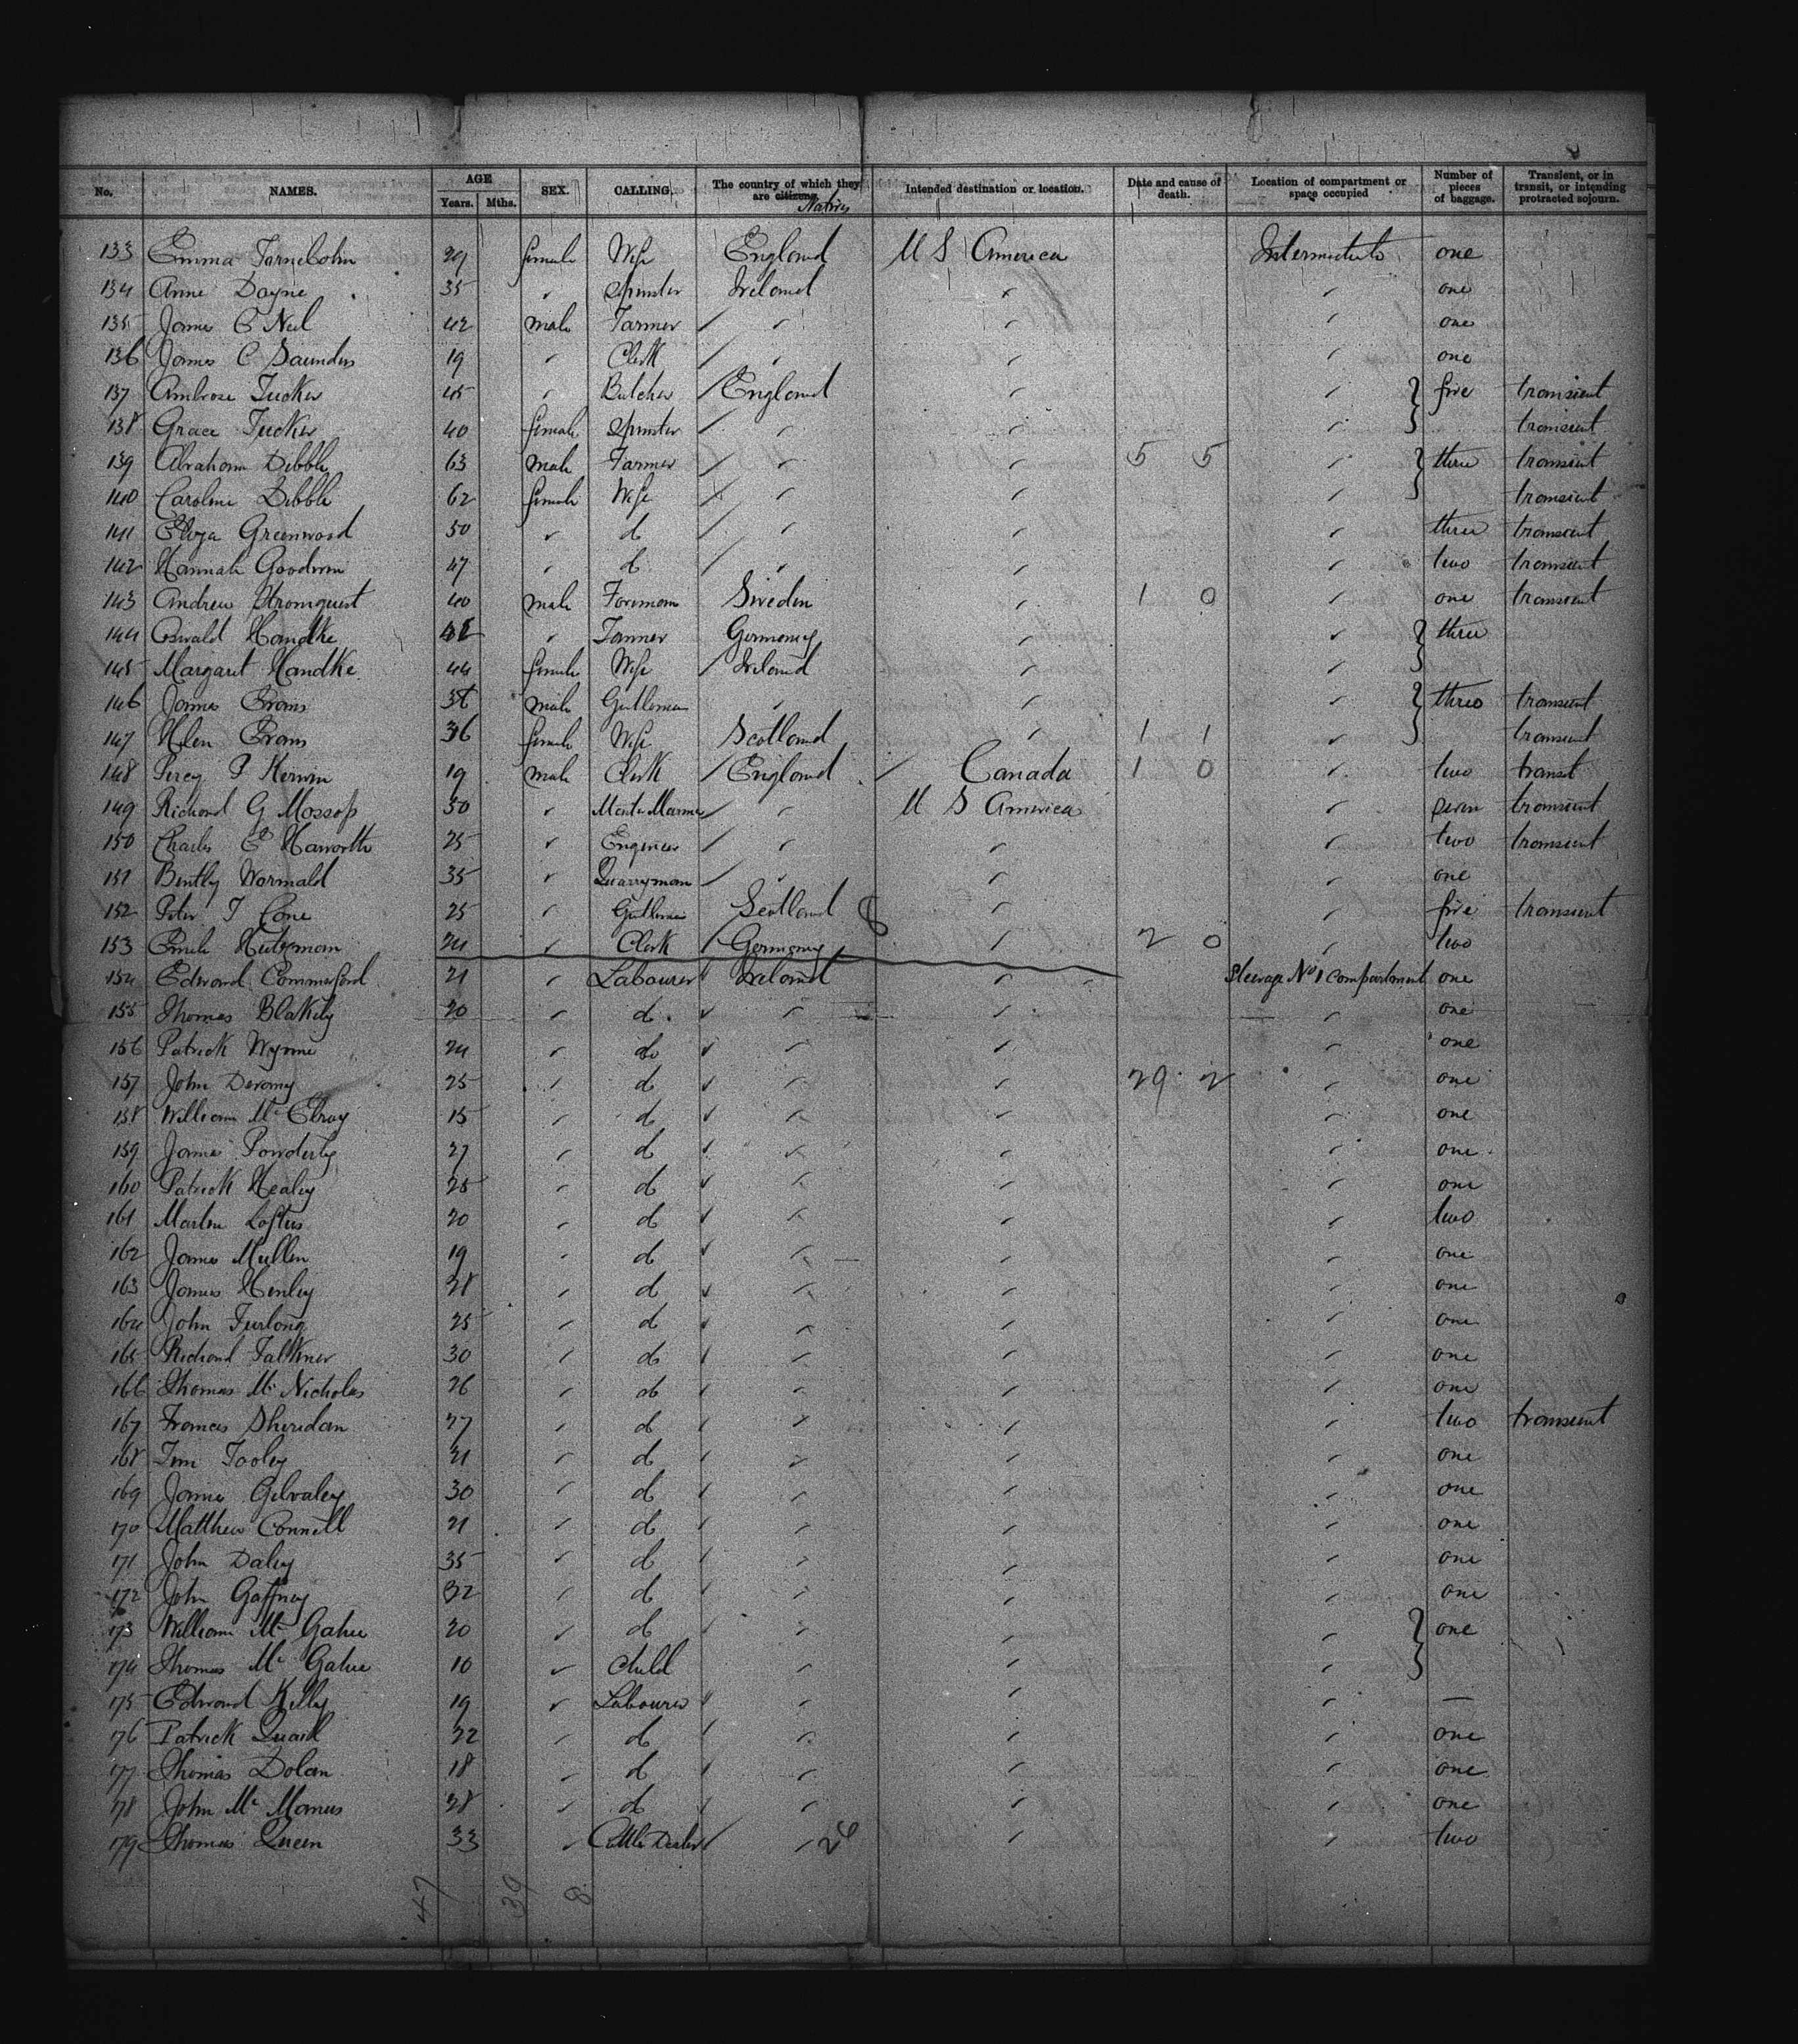 No. NAMES. AGE Years. Mths. SEX. CALLING. The country of which they are citizens. Natives Intended destination or location. Date and cause of death. Location of compartment or space occupied Number of pieces of baggage. Transient, or in transit, or intending protracted sojourn.
133 Emma female Wife England U S America Intermediate one
134 Anne Dayne 35 " Spinster Ireland " " one
135 James 42 male Farmer " " " one
136 James C Saunders 19 " Clerk " " " one
137 Ambrose Tucker 45 " Butcher England " " } five transient
138 Grace Tucker 40 female Spinster " " " transient
139 Abraham Dibble 63 male Farmer " " 5 5 " } three transient
140 Caroline Dibble 62 female Wife " " " transient
141 Eliza Greenwood 50 " do " " " three transient
142 Hannah Goodwin 47 " do " " " two transient
143 Andrew Stromquist 40 male Foreman Sweden " 1 0 " one transient
144 Oswald Handke " Germany " " } three
145 Margaret Handke 44 female Wife Ireland " "
146 James Evans male Gentleman " " " } three transient
147 Helen Evans 36 female Wife Scotland " 1 1 " transient
148 Percy P Kerwin 19 male Clerk England Canada 1 0 " two transit
149 Richard G Mossop 30 " Master Mariner " U S America " seven transient
150 Charles E Haworth 25 " Engineer " " " two transient
151 Bently Wormald 35 " Quarryman " " " one
152 Peter T Cone 25 " Gentleman Scotland 8 " " five transient
153 Emile 24 " Clerk Germany " 2 0 " two
154 Edward Commerford 21 " Labourer Ireland " Steerage No 1 Compartment one
155 Thomas Blakely 20 " do " " " one
156 Patrick Wynne 24 " do " " " one
157 John Devany 25 " do " " 29 2 " one
158 William McElroy 15 " do " " " one
159 James Powderly 27 " do " " " one
160 Patrick Healey 25 " do " " " one
161 Martin Loftus 20 " do " " " two
162 James Mullen 19 " do " " " one
163 James Henley 28 " do " " " one
164 John Furlong 25 " do " " " one
165 Richard Falkner 30 " do " " " one
166 Thomas McNicholas 26 " do " " " one
167 Frances Sheridan 27 " do " " " two transient
168 Tim Tooley 21 " do " " " one
169 James Gilvaley 30 " do " " " one
170 Matthew Connell 21 " do " " " one
171 John Daley 35 " do " " " one
172 John Gaffney 32 " do " " " one
173 William McGahie 20 " do " " " } one
174 Thomas McGahie 10 " Child " " "
175 Edward Kelly 19 " Labourer " " " —
176 Patrick Quail 22 " do " " " one
177 Thomas Dolan 18 " do " " " one
178 John McManus 28 " do " " " one
179 Thomas Queen 33 " Cattle Dealer " 26 " " two
47 39 8